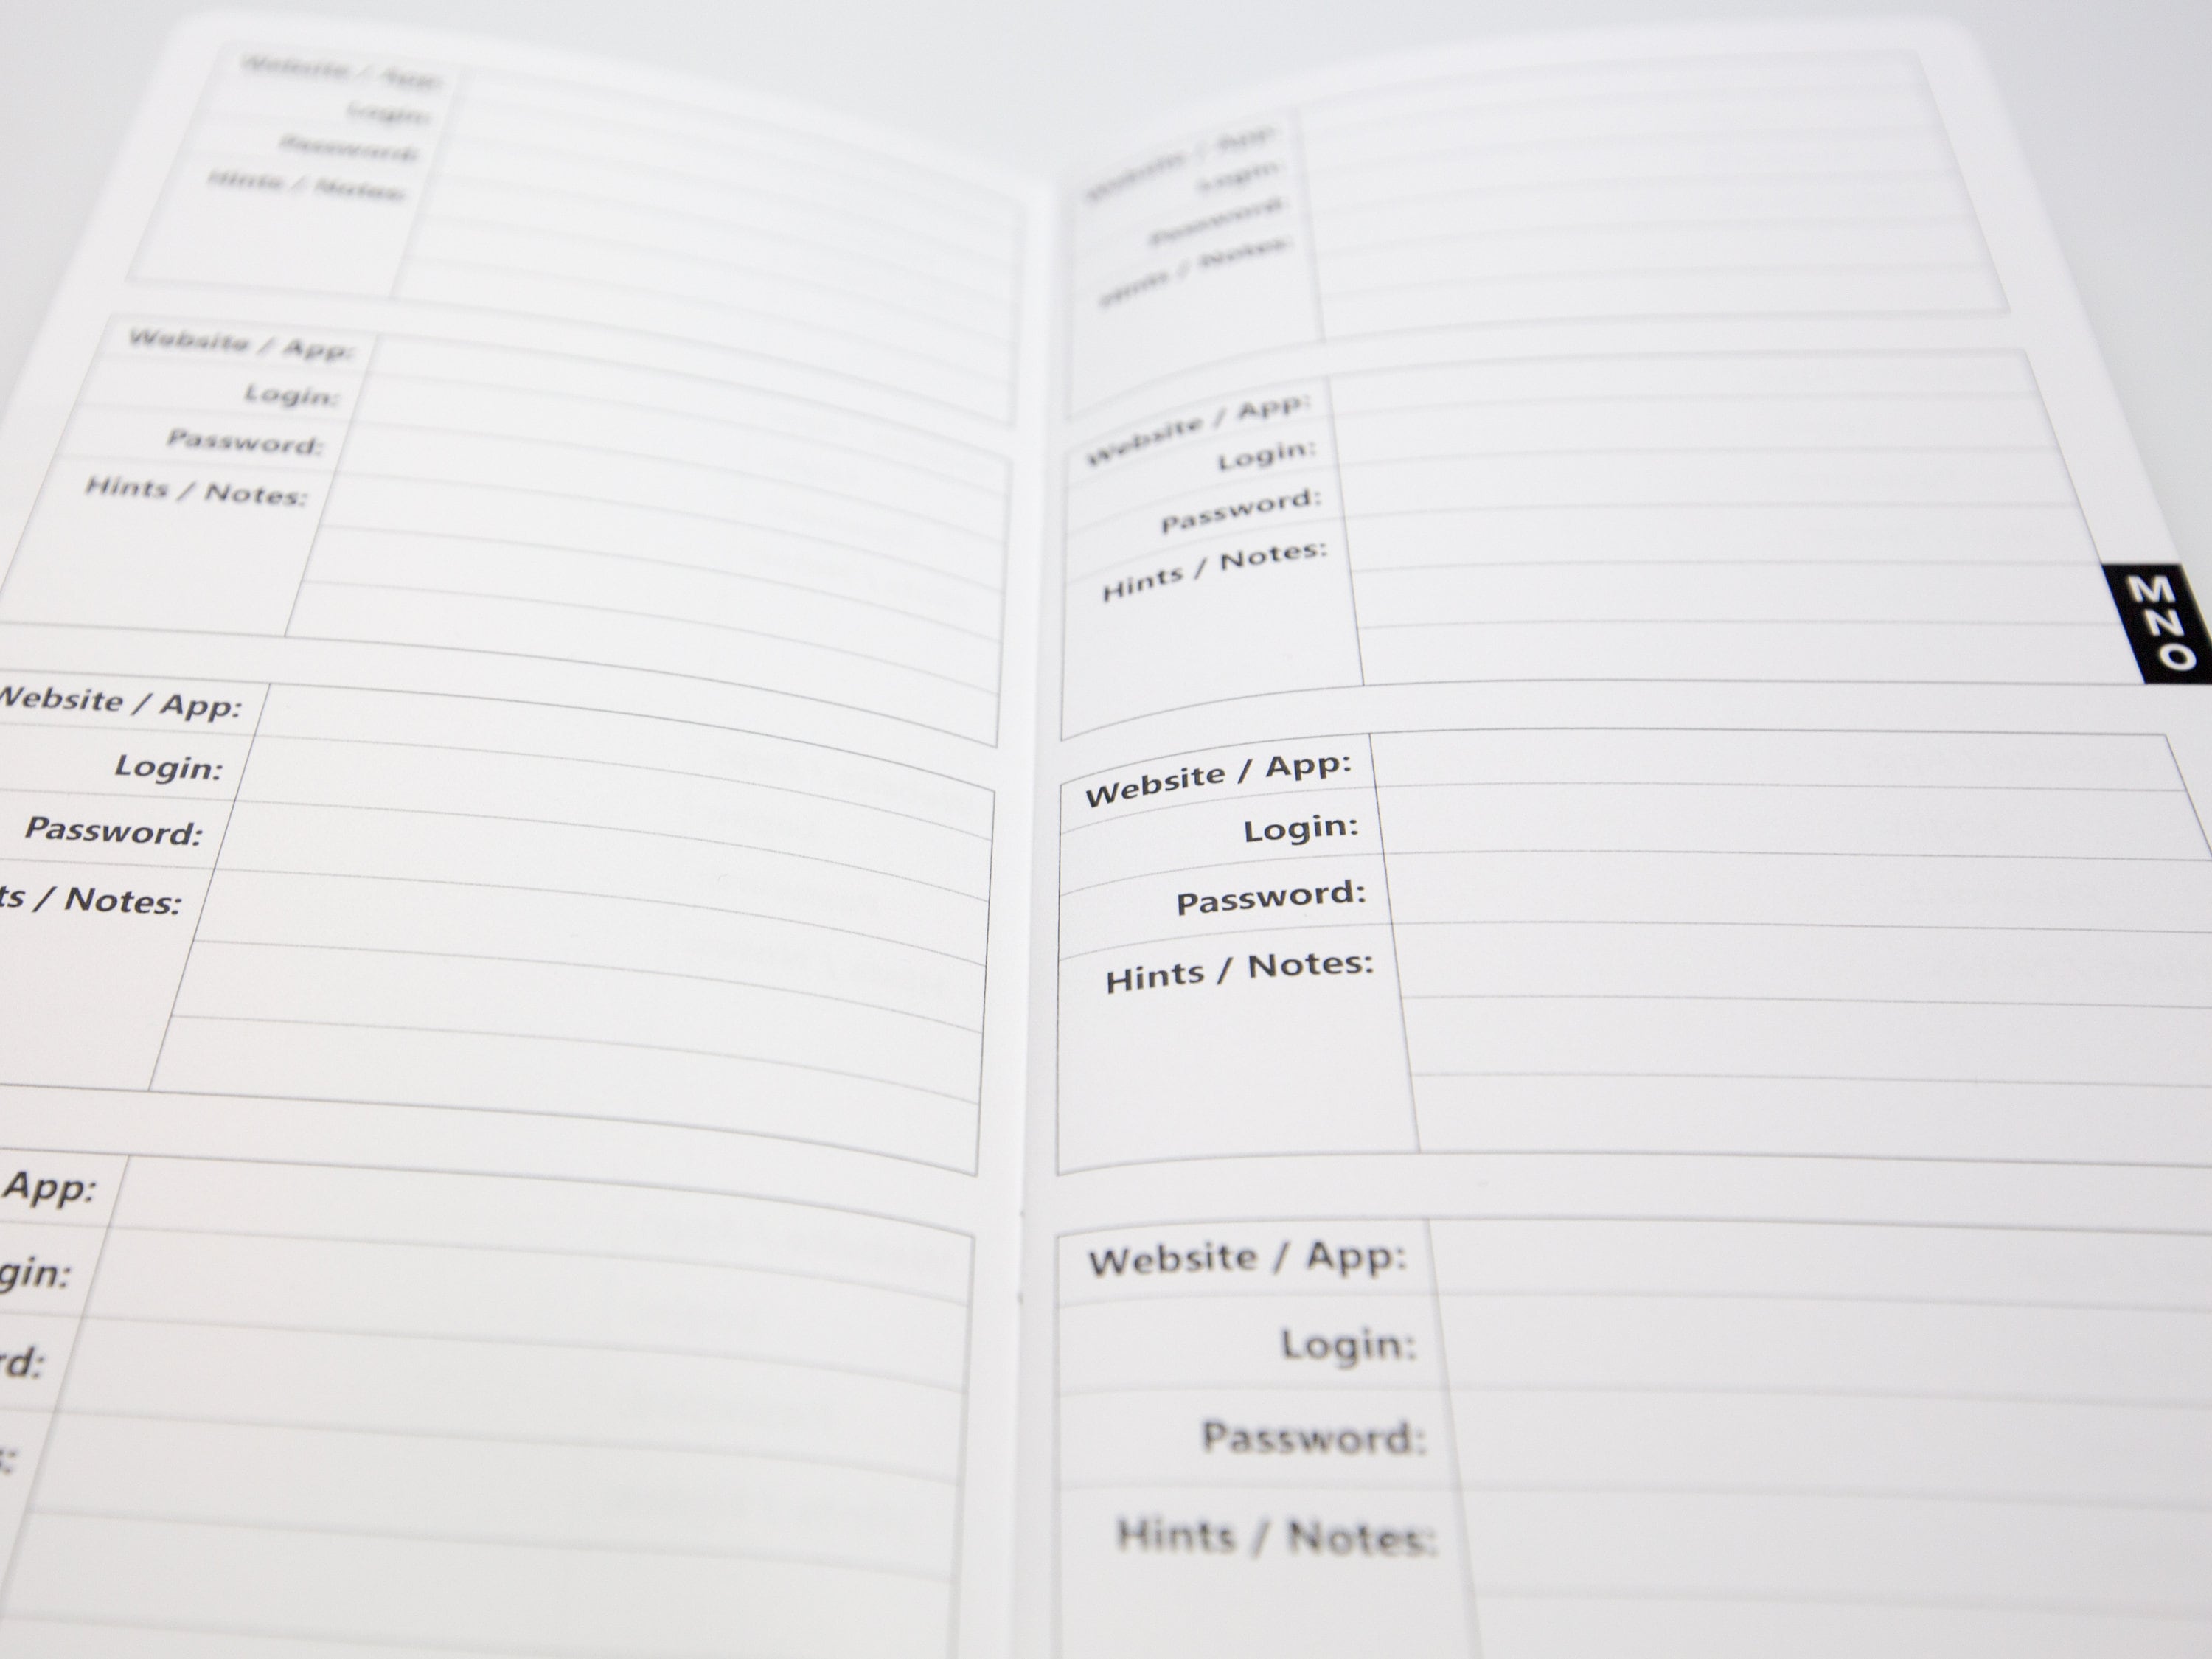 Website / App:
Login:
Password:
Hints / Notes:
Website / App:
Login:
Password:
Hints / Notes:
Website / App:
Login:
Password:
ts / Notes:
App:
gin:
rd:
s:
Website / App:
Login:
Password:
Hints / Notes:
Website / App:
Login:
Password:
Hints / Notes:
Website / App:
Login:
Password:
Hints / Notes:
Website / App:
Login:
Password:
Hints / Notes:
M
N
O